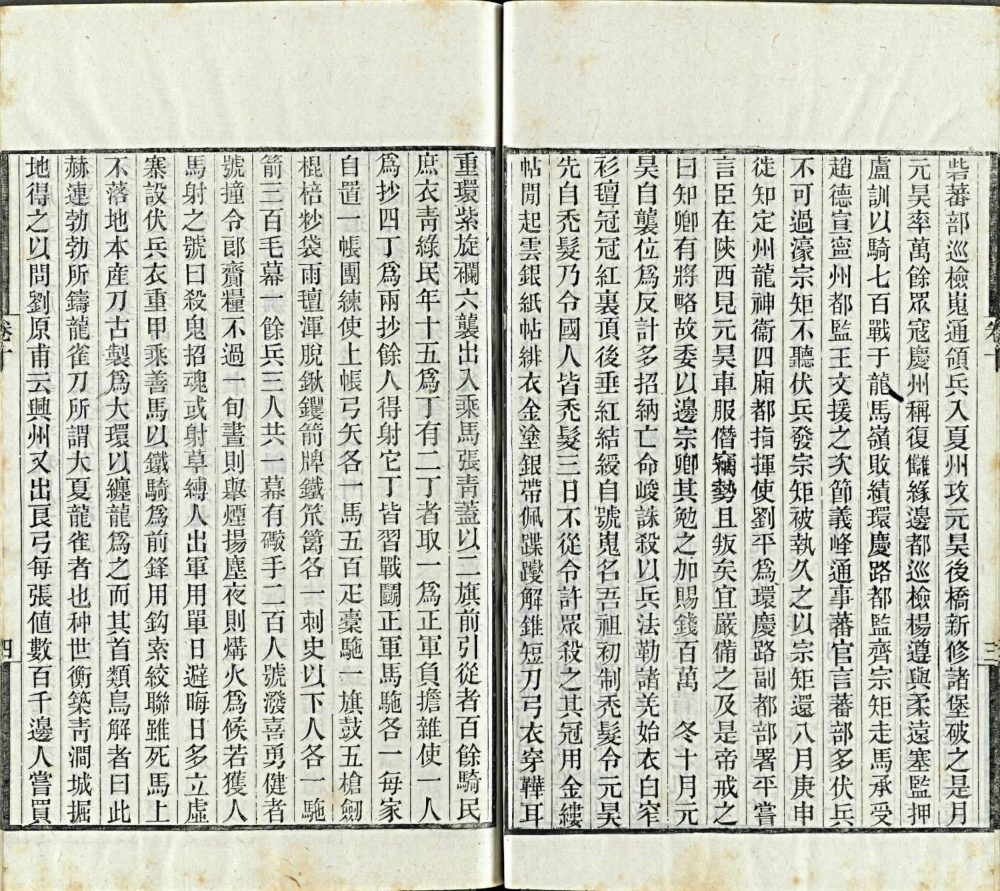 砦蕃部巡檢嵬通領兵入夏州攻元昊後橋新修諸堡破之是月
元昊率萬餘眾寇慶州稱復讎緣邊都巡檢楊遵與柔遠塞監押
盧訓以騎七百戰于龍馬嶺敗績環慶路都監齊宗矩走馬承受
趙德宣寧州都監王文援之次節義峰通事蕃官言蕃部多伏兵
不可過濠宗矩不聽伏兵發宗矩被執久之以宗矩還八月庚申
徙知定州龍神衞四廂都指揮使劉平爲環慶路副都部署平嘗
言臣在陝西見元昊車服僭竊勢且叛矣宜嚴備之及是帝戒之
曰知卿有將略故委以邊宗卿其勉之加賜錢百萬　冬十月元
昊自襲位爲反計多招納亡命峻誅殺以兵法勒諸羌始衣白窄
衫氊冠冠紅裏頂後垂紅結綬自號嵬名吾祖初制禿髮令元昊
先自禿髮乃令國人皆禿髮三日不從令許眾殺之其冠用金縷
帖閒起雲銀紙帖緋衣金塗銀帶佩蹀躞解錐短刀弓衣穿鞾耳
重環紫旋襴六襲出入乘馬張靑蓋以二旗前引從者百餘騎民
庶衣靑綠民年十五爲丁有二丁者取一爲正軍負擔雜使一人
爲抄四丁爲兩抄餘人得射它丁皆習戰鬭正軍馬駞各一每家
自置一帳團練使上帳弓矢各一馬五百疋橐駞一旗鼓五槍劒
棍棓粆袋雨氊渾脫鍬钁箭牌鐵笊篱各一刺史以下人各一駞
箭三百毛幕一餘兵三人共一幕有礮手二百人號潑喜勇健者
號撞令郎齎糧不過一旬晝則舉煙揚塵夜則㷭火爲候若獲人
馬射之號曰殺鬼招魂或射草縛人出軍用單日避晦日多立虛
寨設伏兵衣重甲乘善馬以鐵騎爲前鋒用鈎索絞聯雖死馬上
不落地本産刀古製爲大環以纏龍爲之而其首類鳥解者曰此
赫連勃勃所鑄龍雀刀所謂大夏龍雀者也种世衡築靑澗城掘
地得之以問劉原甫云興州又出良弓每張値數百千邊人嘗買
卷十
三
卷十
四